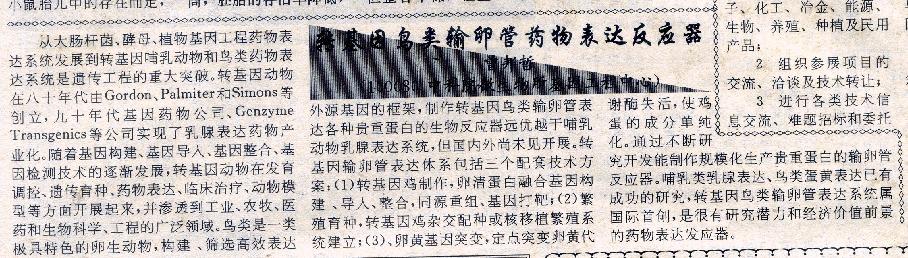 小鼠胎儿中的存在而定,
转基因鸟类输卵管药物表达反应器
从大肠杆菌、酵母、植物基因工程药物表
达系统发展到转基因哺乳动物和鸟类药物表
达系统是遗传工程的重大突破。转基因动物
在八十年代由Gordon、Palmiter和Simons等
创立,九十年代基因药物公司、Genzyme
Transgenics等公司实现了乳腺表达药物产
业化。随着基因构建、基因导入、基因整合、基
因检测技术的逐渐发展,转基因动物在发育
调控、遗传育种、药物表达、临床治疗、动物模
型等方面开展起来,并渗透到工业、农牧、医
药和生物科学、工程的广泛领域。鸟类是一类
极具特色的卵生动物,构建、筛选高效表达
外源基因的框架,制作转基因鸟类输卵管表
达各种贵重蛋白的生物反应器远优越于哺乳
动物乳腺表达系统,但国内外尚未见开展。转
基因输卵管表达体系包括三个配套技术方
案:(1)转基因鸡制作,卵清蛋白融合基因构
建、导人、整合,同源重组、基因打靶;(2)繁
殖育种,转基因鸡杂交配种或核移植繁殖系
统建立;(3)、卵黄基因突变,定点突变卵黄代
谢酶失活,使鸡
蛋的成分单纯
化。通过不断研
究开发能制作规模化生产贵重蛋白的输卵管
反应器。哺乳类乳腺表达、鸟类蛋黄表达已有
成功的研究,转基因鸟类输卵管表达系统属
国际首创,是很有研究潜力和经济价值前景
的药物表达反应器。
子、化工、冶金、能源、
生物、养殖、种植及民用
产品;
2 组织参展项目的
交流、洽谈及技术转让;
3 进行各类技术信
息交流、难题招标和委托